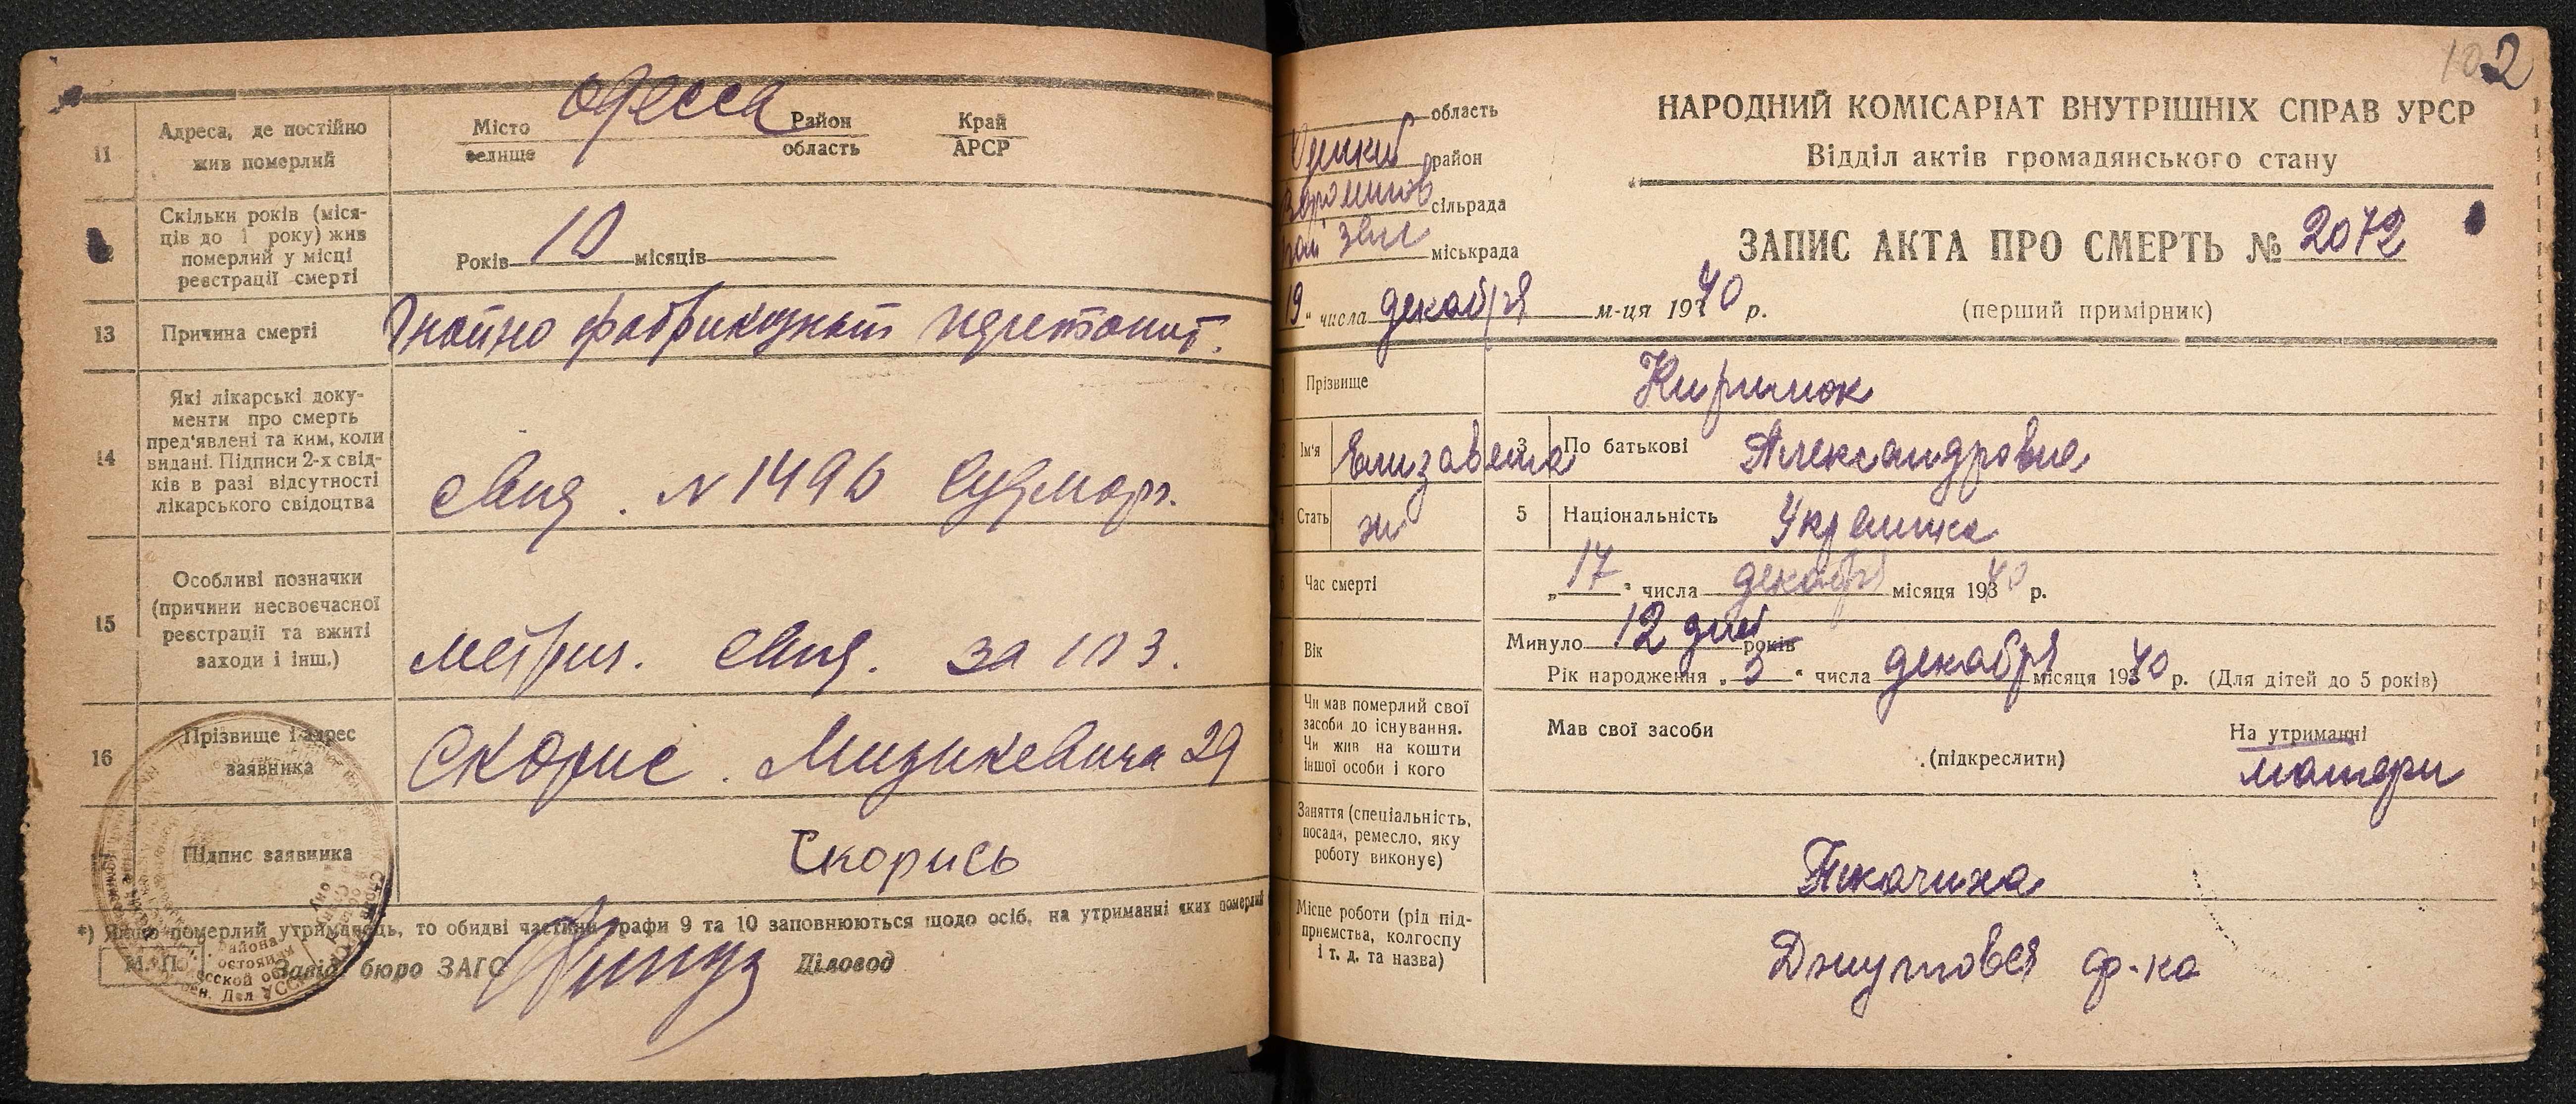 11
Адреса, де постійно
жив померлий
Місто
селище
Одесса
Район
область
Край
АРСР
Скільки років (міся-
ців до 1 року) жив
померлий у місці
реєстрації смерті
Років 10 місяців
13
Причина смерті
Гнойно перетонит.
14
Які лікарські доку-
менти про смерть
пред'явлені та ким, коли
видані. Підписи 2-х свід-
ків в разі відсутності
лікарського свідоцтва
свид. N 1496 Судморг.
15
Особливі позначки
(причини несвоєчасної
реєстрації та вжиті
заходи і інш.)
метрич. свид. за
16
Прізвище і адрес
заявника
Скорис. Мизикевича 29
Підпис заявника
Скорись
*) Якщо померлий утриманець, то обидві частини графи 9 та 10 заповнюються щодо осіб, на утриманні яких померлий
М. П.
Завід. бюро ЗАГС
Діловод
102
область
район
Ворошилов
сільрада
рай загс
міськрада
19 " числа декабря м-ця 1940 р.
НАРОДНИЙ КОМІСАРІАТ ВНУТРІШНІХ СПРАВ УРСР
Відділ актів громадянського стану
ЗАПИС АКТА ПРО СМЕРТЬ № 2072
(перший примірник)
Прізвище
Кирилюк
Ім'я
Елизавета
3
По батькові
Александровна
Стать
ж
5
Національність
Украинка
Час смерті
„ 17 " числа декабря місяця 1940 р.
Вік
Минуло 12 дней років
Рік народження „ 5 " числа декабря місяця 1940 р. (Для дітей до 5 років)
Чи мав померлий свої
засоби до існування.
Чи жив на кошти
іншої особи і кого
Мав свої засоби
(підкреслити)
На утриманні
матери
Заняття (спеціальність,
посада, ремесло, яку
роботу виконує)
Ткачиха
Місце роботи (рід під-
приємства, колгоспу
і т. д. та назва)
Джутовая ф-ка